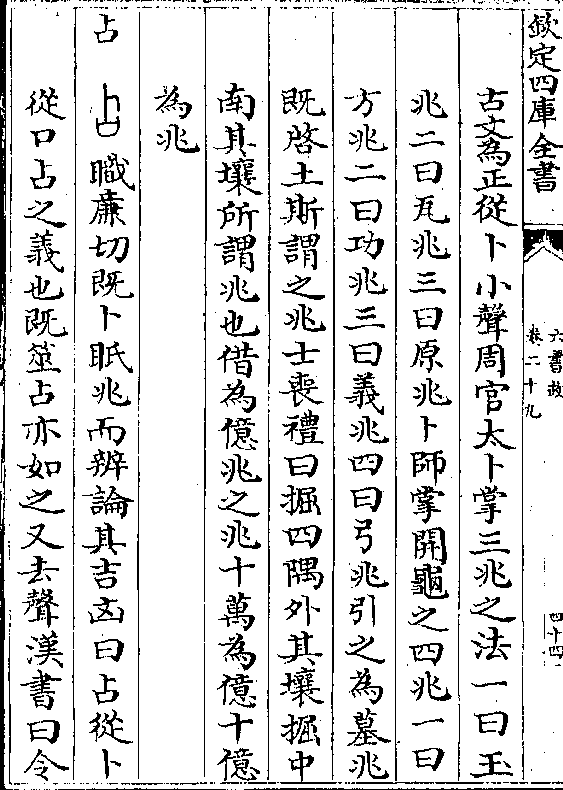 欽定四庫全書
六書故
卷二十九
四十四
古文為正從卜小聲周官太卜掌三兆之法一曰玉
兆二曰瓦兆三曰原兆卜師掌開龜之四兆一曰
方兆二曰功兆三曰義兆四曰弓兆引之為墓兆
既啓土斯謂之兆士喪禮曰掘四隅外其壤掘中
南其壤所謂兆也借為億兆之兆十萬為億十億
為兆
占 占職廉切既卜眂兆而辨論其吉凶曰占從卜
從口占之義也既筮占亦如之又去聲漢書曰令